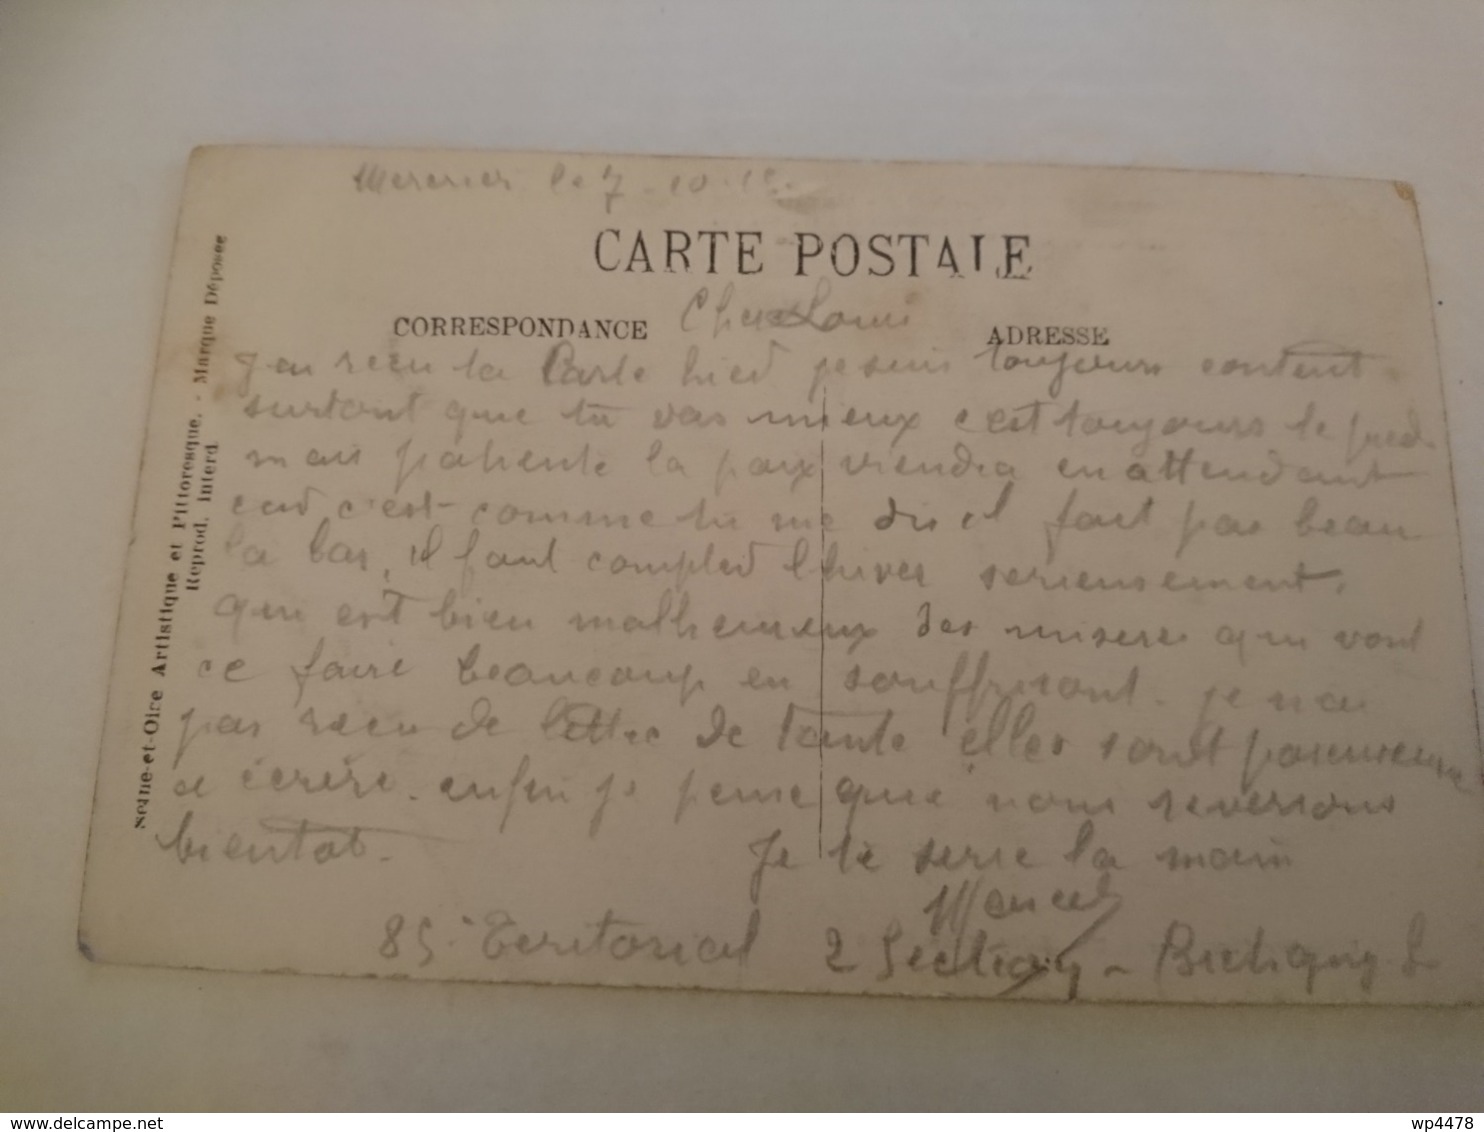 Mercrier le 7-10-15
CARTE POSTALE
CORRESPONDANCE
Cher Louis
ADRESSE
J'ai recu ta Carte hier je suis toujours content
surtout que tu vas mieux c'est toujours le pied
mais patiente la paix viendra en attendant
car c'est comme tu me dis il fait pas beau
la bas, il faut compter l'hiver serieusement,
qui est bien malheureux des miseres qui vont
ce faire beaucoup en souffriront. je n'ai
pas recu de lettre de tante elles sont paresseuse
a écrire. enfin je pense que nous reverrons
bientot.
Je te serre la main
Marcel
85e Teritorial 2 Section - Bretigny
Seine-et-Oise Artistique et Pittoresque. - Marque Déposée
Reprod. Interd.
wp4478